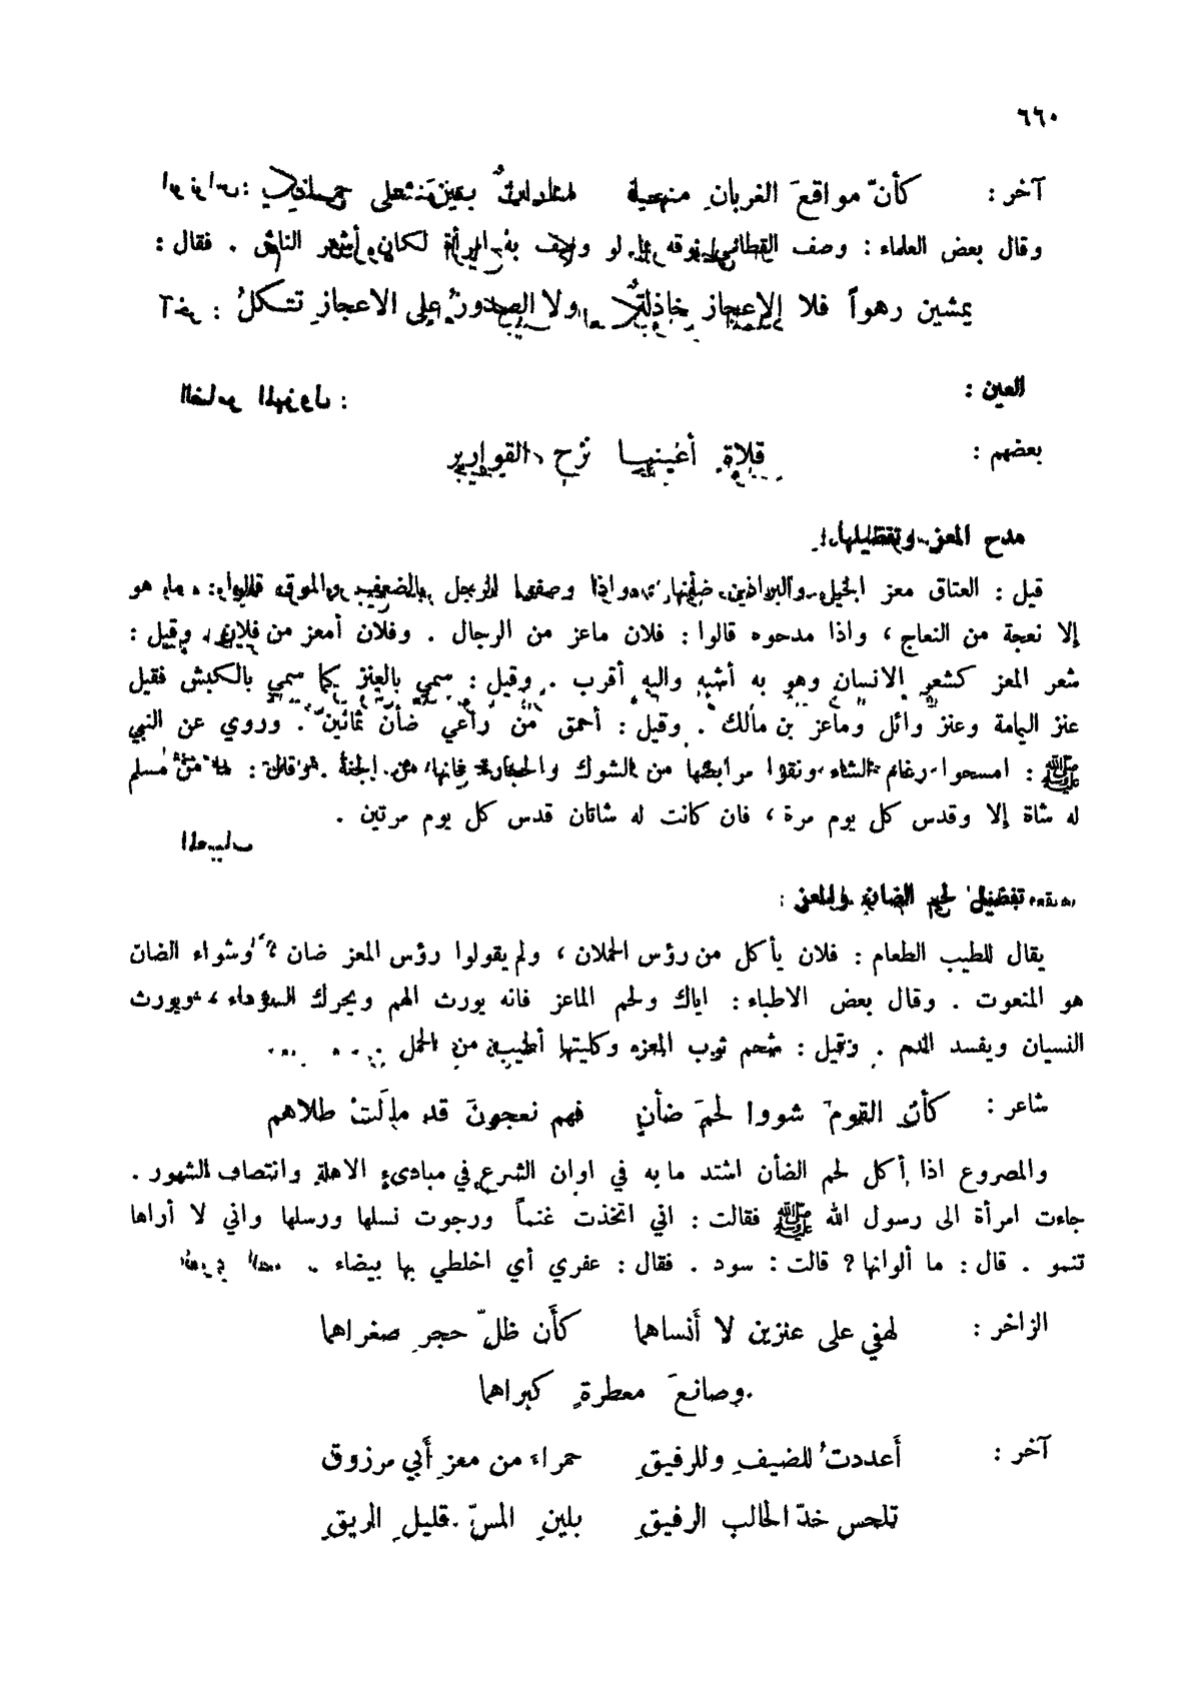 ٦٦٠
آخر : كأنّ مواقعَ الغربانِ منها
وقال بعض العلماء : وصف القطامي نوقه بما لو وصف به امرأة لكان أشعر الناس . فقال :
يمشين رهواً فلا الإعجاز خاذلةٌ ولا الصدورُ على الاعجازِ تتكلُ
العين :
بعضهم : أعينها نزح القوارير
مدح المعز وتفضيلها :
قيل : العتاق معز الخيل والبراذين ضأنها ، واذا وصفوا الرجل بالضعف والموق قالوا : ما هو
إلا نعجة من النعاج ، واذا مدحوه قالوا : فلان ماعز من الرجال . وفلان أمعز من فلان ، وقيل :
شعر المعز كشعر الانسان وهو به أشبه واليه أقرب . وقيل : سمي بالعنز كما سمي بالكبش فقيل
عنز اليامة وعنز وائل وماعز بن مالك . وقيل : أحمق من راعي ضأن ثمانين . وروي عن النبي
ﷺ : امسحوا رغام الشاء ونقوا مرابضها من الشوك والحجارة فانها من الجنة . وقال : ما من مسلم
له شاة إلا وقدس كل يوم مرة ، فان كانت له شاتان قدس كل يوم مرتين .
تفضيل لحم الضان والمعز :
يقال للطيب الطعام : فلان يأكل من رؤس الحملان ، ولم يقولوا رؤس المعز ضان ? وشواء الضان
هو المنعوت . وقال بعض الاطباء : اياك ولحم الماعز فانه يورث الهم ويحرك السوداء ، ويورث
النسيان ويفسد الدم . وقيل : شحم ثرب المعز وكليتها أطيب من الحمل
شاعر : كأن القومَ شووا لحمَ ضأنٍ فهم نعجونَ قد مالَتْ طلاهم
والمصروع اذا أكل لحم الضأن اشتد ما به في اوان الشرع في مبادىء الاهلة وانتصاف الشهور .
جاءت امرأة الى رسول الله ﷺ فقالت : اني اتخذت غنماً ورجوت نسلها ورسلها واني لا أراها
تنمو . قال : ما ألوانها ? قالت : سود . فقال : عفري أي اخلطي بها بيضاء .
الزاخر : لهفي على عنزين لا أَنساهما كأَن ظلّ حجرٍ صغراهما
وصانعَ معطرةٍ كبراهما
آخر : أَعددتُ للضيفِ وللرفيقِ حمراء من معزِ أَبي مرزوق
تلحس خدّ الحالب الرفيقِ بلينِ المسّ قليلِ الريقِ